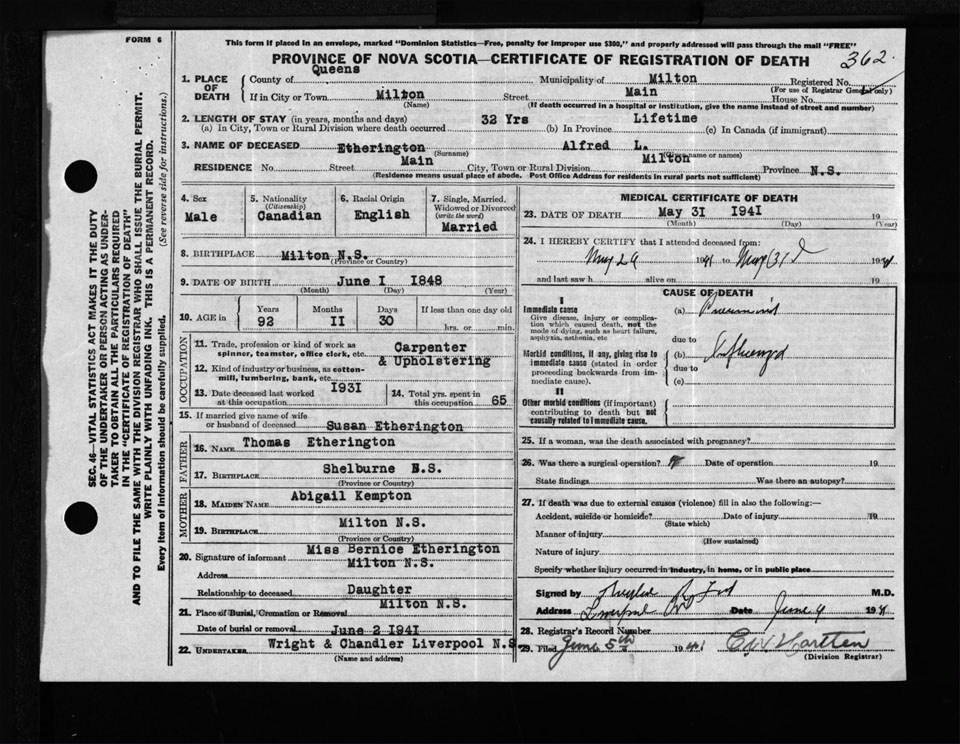 FORM 6
This form if placed in an envelope, marked "Dominion Statistics—Free, penalty for improper use $300," and properly addressed will pass through the mail "FREE"
PROVINCE OF NOVA SCOTIA—CERTIFICATE OF REGISTRATION OF DEATH
362
1. PLACE OF DEATH
County of Queens Municipality of Milton Registered No.
(For use of Registrar General only)
If in City or Town Milton Street Main House No.
(Name) (If death occurred in a hospital or institution, give the name instead of street and number)
2. LENGTH OF STAY (in years, months and days)
(a) In City, Town or Rural Division where death occurred 32 Yrs (b) In Province Lifetime (c) In Canada (if immigrant)
3. NAME OF DECEASED Etherington Alfred L.
(Surname) (Given name or names)
RESIDENCE No. Street Main City, Town or Rural Division Milton Province N.S.
(Residence means usual place of abode. Post Office Address for residents in rural parts not sufficient)
4. Sex Male
5. Nationality (Citizenship) Canadian
6. Racial Origin English
7. Single, Married, Widowed or Divorced (write the word) Married
8. BIRTHPLACE Milton N.S.
(Province or Country)
9. DATE OF BIRTH June I 1848
(Month) (Day) (Year)
10. AGE in Years Months Days If less than one day old
92 II 30 hrs. or min.
OCCUPATION
11. Trade, profession or kind of work as spinner, teamster, office clerk, etc. Carpenter
12. Kind of industry or business, as cotton-mill, lumbering, bank, etc. & Upholstering
13. Date deceased last worked at this occupation 193I
14. Total yrs. spent in this occupation 65
15. If married give name of wife or husband of deceased Susan Etherington
FATHER
16. NAME Thomas Etherington
17. BIRTHPLACE Shelburne N.S.
(Province or Country)
MOTHER
18. MAIDEN NAME Abigail Kempton
19. BIRTHPLACE Milton N.S.
(Province or Country)
20. Signature of informant Miss Bernice Etherington
Address Milton N.S.
Relationship to deceased Daughter
21. Place of Burial, Cremation or Removal Milton N.S.
Date of burial or removal June 2 194I
22. UNDERTAKER Wright & Chandler Liverpool N.S
(Name and address)
MEDICAL CERTIFICATE OF DEATH
23. DATE OF DEATH May 3I 194I 19
(Month) (Day) (Year)
24. I HEREBY CERTIFY that I attended deceased from:
May 29 1941 to May 31 1941
and last saw h alive on 19
CAUSE OF DEATH
I
Immediate cause
Give disease, injury or complication which caused death, not the mode of dying, such as heart failure, asphyxia, asthenia, etc
(a)
due to
Morbid conditions, if any, giving rise to immediate cause (stated in order proceeding backwards from immediate cause).
(b)
due to
(c)
II
Other morbid conditions (if important) contributing to death but not causally related to immediate cause.
25. If a woman, was the death associated with pregnancy?
26. Was there a surgical operation? Date of operation 19
State findings Was there an autopsy?
27. If death was due to external causes (violence) fill in also the following:—
Accident, suicide or homicide? Date of injury 19
(State which)
Manner of injury
(How sustained)
Nature of injury
Specify whether injury occurred in industry, in home, or in public place
Signed by M.D.
Address Liverpool Date June 4 1941
28. Registrar's Record Number
29. Filed June 5th 1941
(Division Registrar)
SEC. 46—VITAL STATISTICS ACT MAKES IT THE DUTY
OF THE UNDERTAKER OR PERSON ACTING AS UNDER-
TAKER TO OBTAIN ALL THE PARTICULARS REQUIRED
IN THE "CERTIFICATE OF REGISTRATION OF DEATH"
AND TO FILE THE SAME WITH THE DIVISION REGISTRAR WHO SHALL ISSUE THE BURIAL PERMIT.
WRITE PLAINLY WITH UNFADING INK. THIS IS A PERMANENT RECORD.
Every item of information should be carefully supplied. (See reverse side for instructions.)